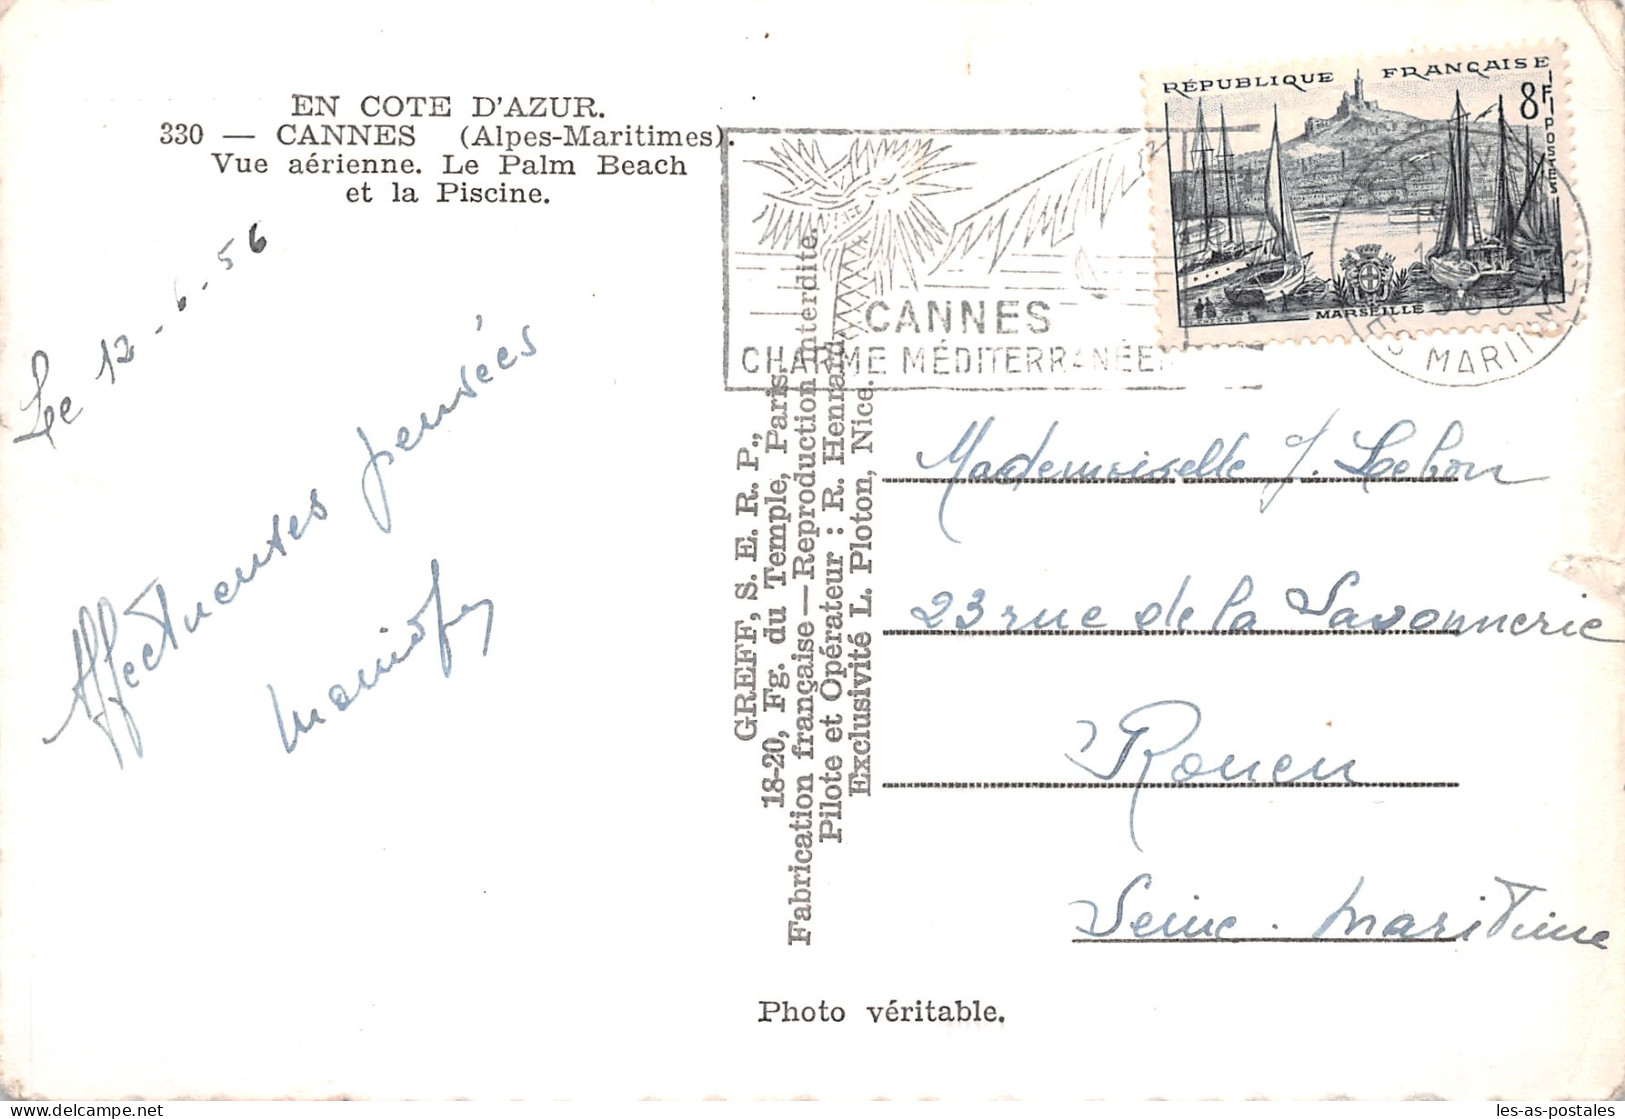 EN COTE D'AZUR.
330 — CANNES (Alpes-Maritimes).
Vue aérienne. Le Palm Beach
et la Piscine.
Le 12-6-56
Affectueuses pensées
RÉPUBLIQUE FRANÇAISE
8F
POSTES
MARSEILLE
CANNES
CHARME MÉDITERRANÉEN
GREFF, S. E. R. P.,
18-20, Fg. du Temple, Paris.
Fabrication française — Reproduction interdite.
Pilote et Opérateur : R. Henrard.
Exclusivité L. Ploton, Nice.
Mademoiselle J. Lebon
23 rue de la Savonnerie
Rouen
Seine-Maritime
Photo véritable.
les-as-postales